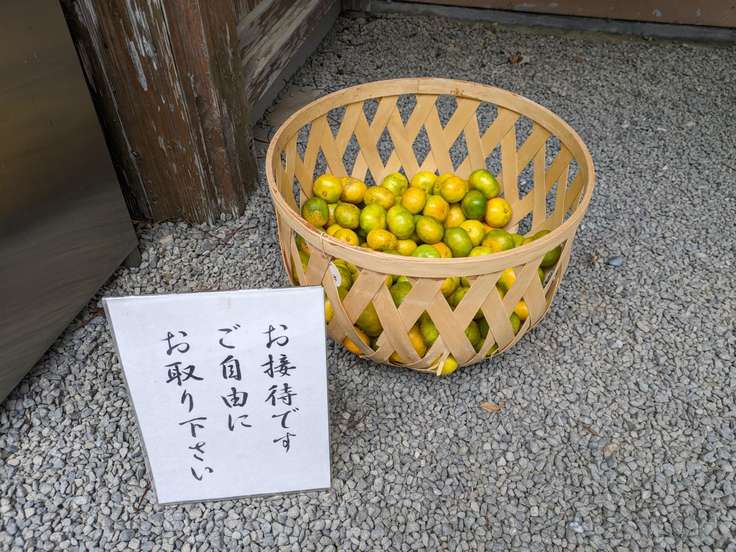 お接待です
ご自由に
お取り下さい